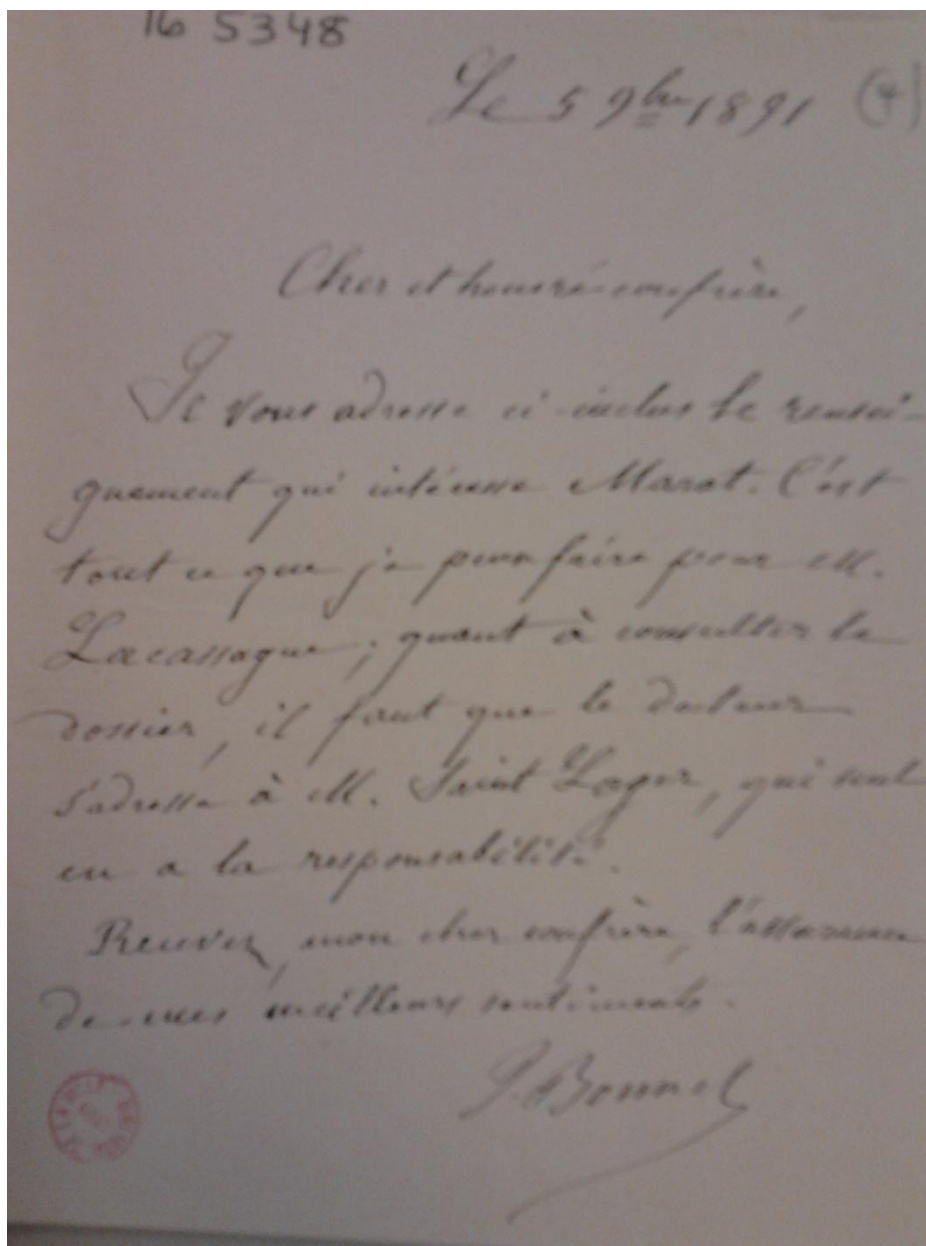 16 5348
Le 5 9bre 1891 (4)
Cher et honoré confrère,
Je vous adresse ci-inclus le rensei-
gnement qui intéresse Marat. C'est
tout ce que je peux faire pour M.
Lacassagne ; quant à consulter le
dossier, il faut que le docteur
s'adresse à M. Saint Lager, qui seul
en a la responsabilité.
Recevez, mon cher confrère, l'assurance
de mes meilleurs sentiments.
Bonnel